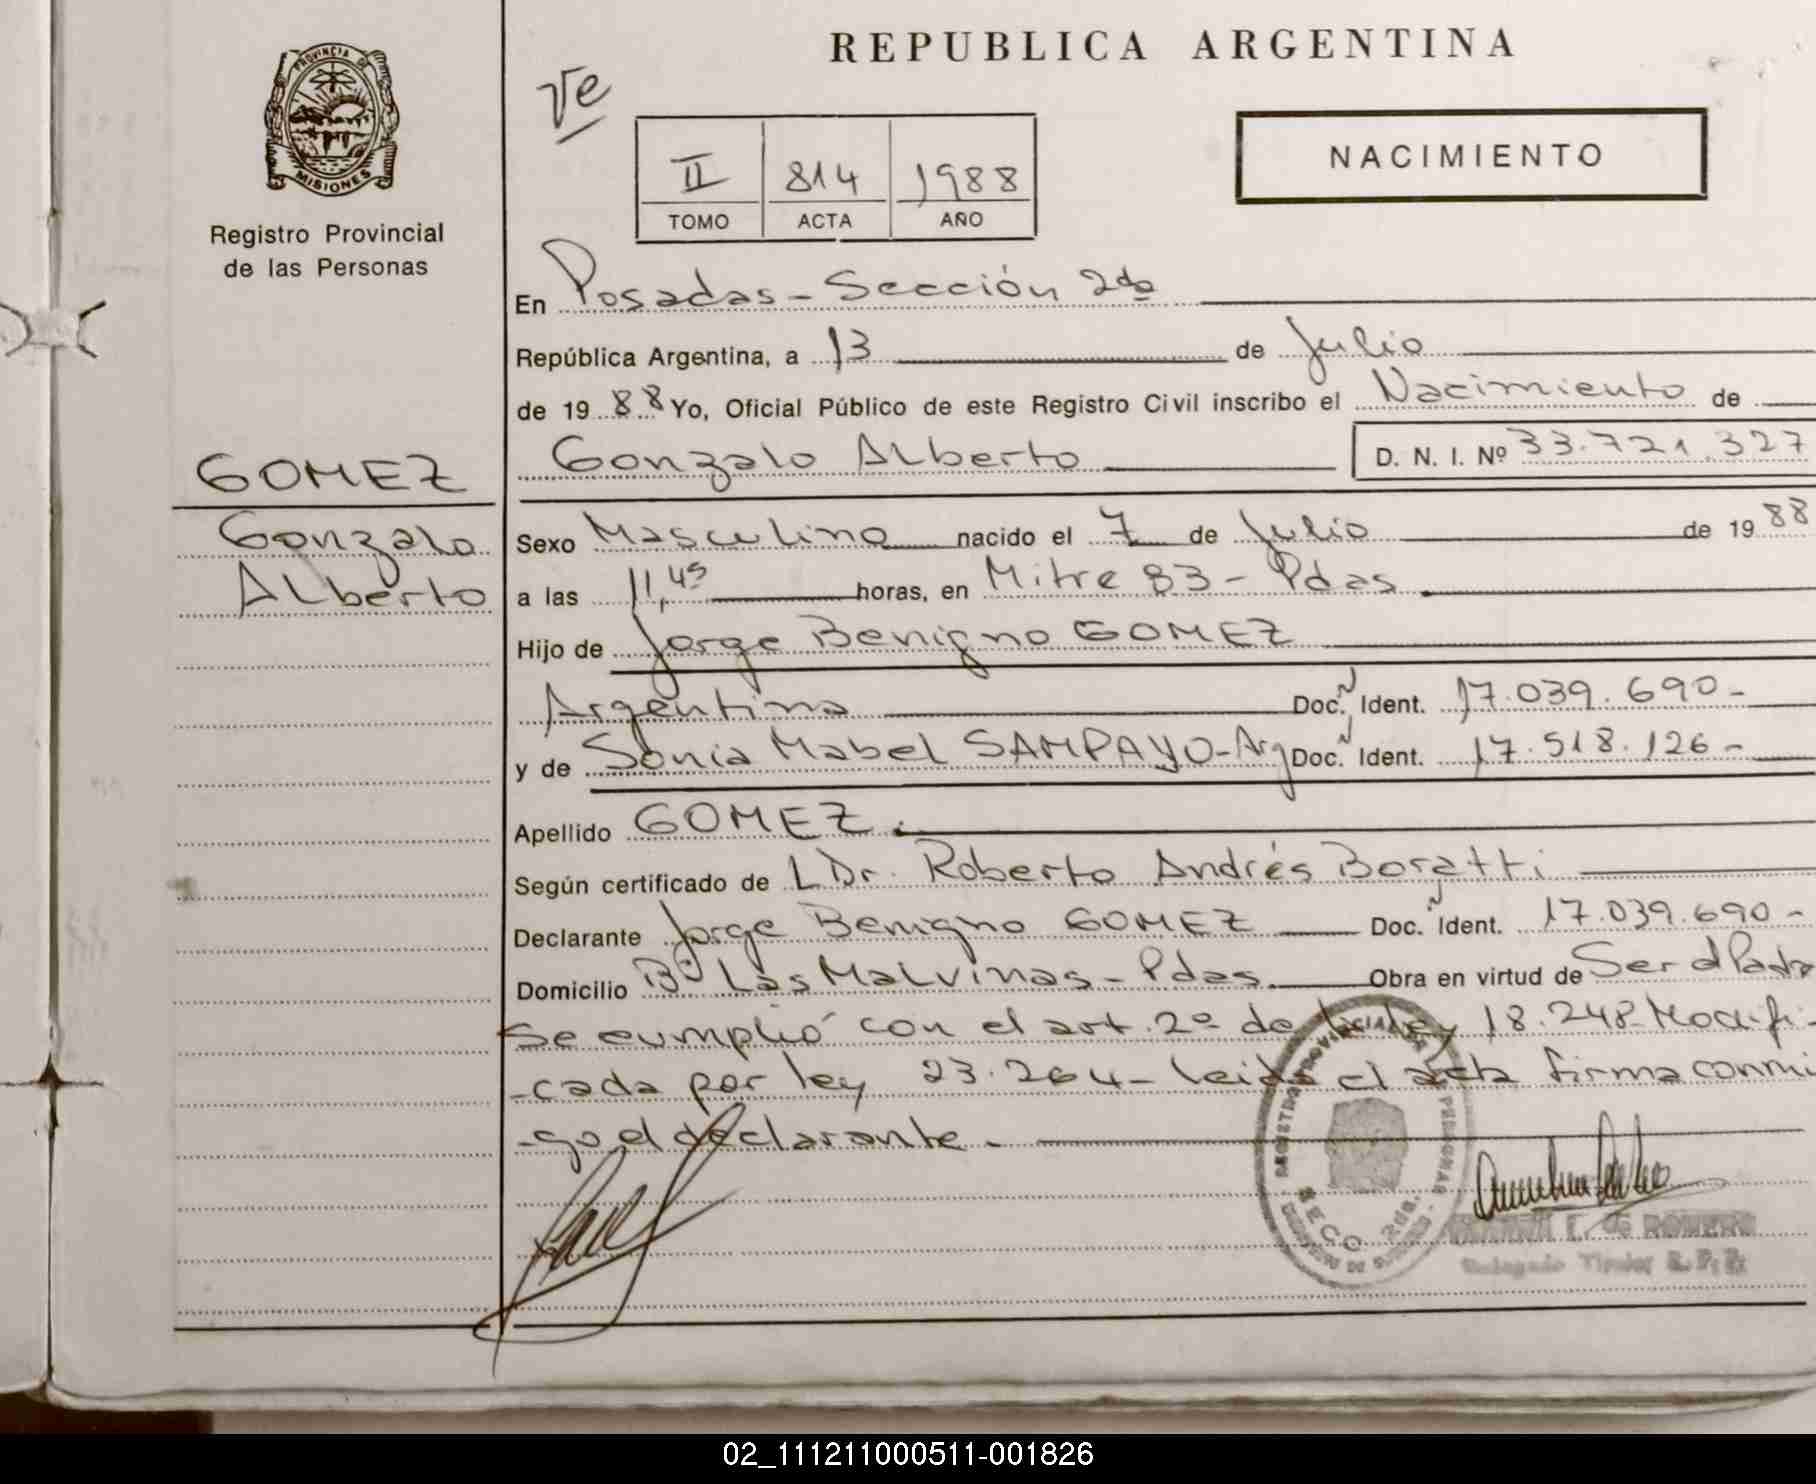 REPUBLICA ARGENTINA
PROVINCIA DE
MISIONES
Registro Provincial
de las Personas
Ve
II 814 1988
TOMO ACTA AÑO
NACIMIENTO
En Posadas - Sección 2da
República Argentina, a 13 de Julio
de 19 88 Yo, Oficial Público de este Registro Civil inscribo el Nacimiento de
GOMEZ
Gonzalo Alberto D. N. I. Nº 33.721.327
Gonzalo
Alberto
Sexo Masculino nacido el 7 de Julio de 19 88
a las 11,45 horas, en Mitre 83 - Pdas
Hijo de Jorge Benigno GOMEZ
Argentina Doc. Ident. 17.039.690-
y de Sonia Mabel SAMPAYO-Arg Doc. Ident. 17.518.126-
Apellido GOMEZ.
Según certificado de L Dr. Roberto Andrés Boratti
Declarante Jorge Benigno GOMEZ Doc. Ident. 17.039.690-
Domicilio Bº Las Malvinas - Pdas. Obra en virtud de Ser el Padre
Se cumplió con el art. 2º de la ley 18.248- Modifi-
-cada por ley 23.264- leida el acta firma conmi
-go el declarante.
REGISTRO PROVINCIAL DE LAS PERSONAS
SECC. 2da.
ROMERO
Delegado Titular R.P.P.
02_111211000511-001826